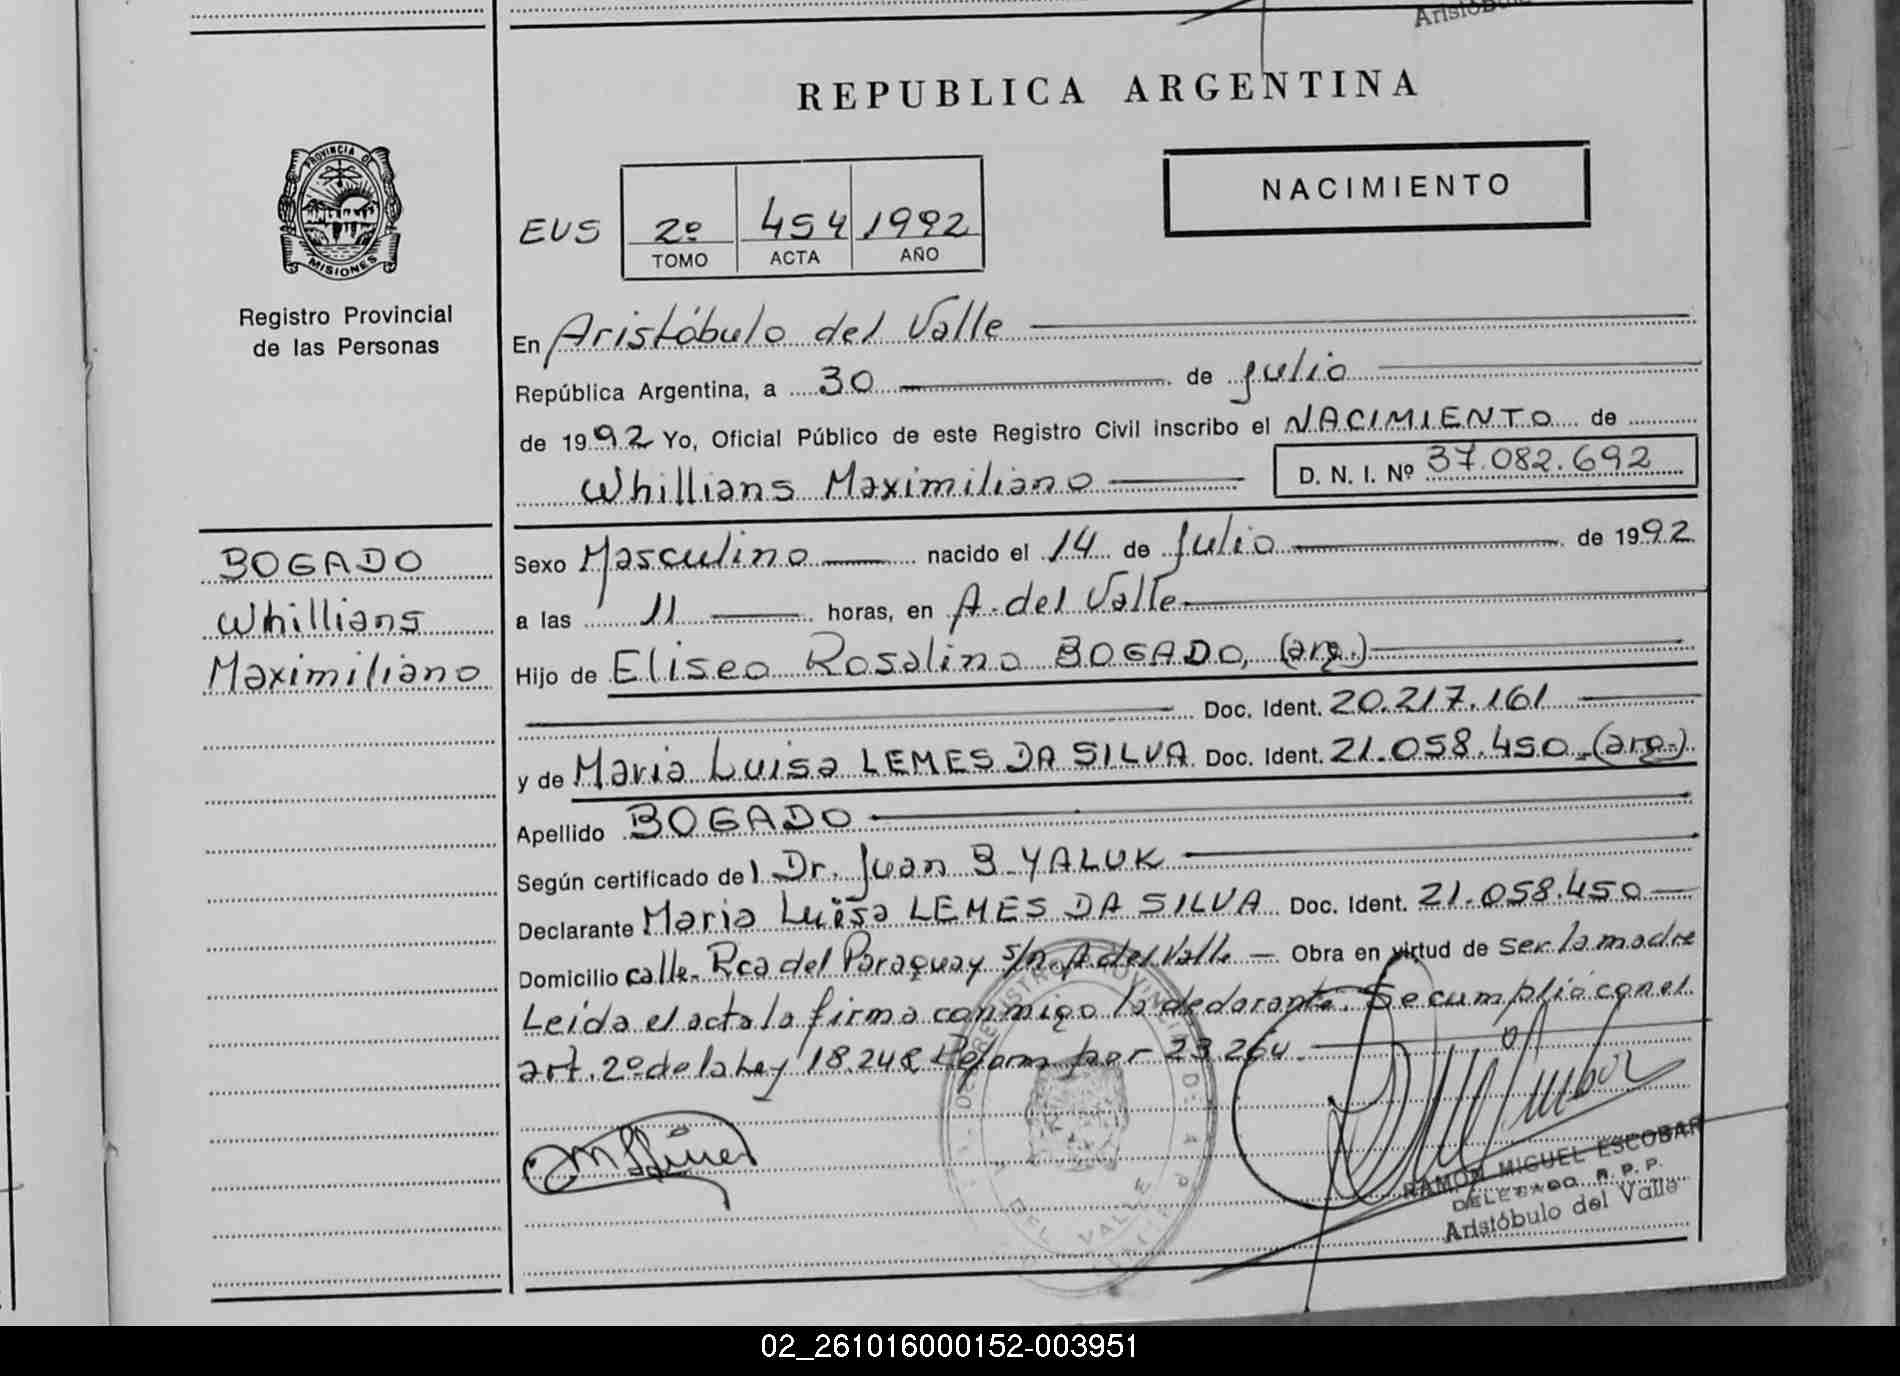 Aristóbulo
REPUBLICA ARGENTINA
PROVINCIA DE
MISIONES
NACIMIENTO
EUS 2º 454 1992
TOMO ACTA AÑO
Registro Provincial
de las Personas
En Aristóbulo del Valle
República Argentina, a 30 de Julio
de 1992 Yo, Oficial Público de este Registro Civil inscribo el NACIMIENTO de
Whillians Maximiliano D. N. I. Nº 37.082.692
BOGADO
Whillians
Maximiliano
Sexo Masculino nacido el 14 de Julio de 1992
a las 11 horas, en A. del Valle
Hijo de Eliseo Rosalino BOGADO, (arg.)
Doc. Ident. 20.217.161
y de Maria Luisa LEMES DA SILVA Doc. Ident. 21.058.450 (arg.)
Apellido BOGADO
Según certificado del Dr. Juan B YALUK
Declarante Maria Luisa LEMES DA SILVA Doc. Ident. 21.058.450
Domicilio calle Rca del Paraguay s/n A del Valle Obra en virtud de ser la madre
Leida el acta la firma conmigo la declarante. Se cumplió con el
art. 2º de la Ley 18.248 Reform por 23.264.
RAMON MIGUEL ESCOBAR
DELEGADO R. P. P.
Aristóbulo del Valle
DEL VALLE
02_261016000152-003951